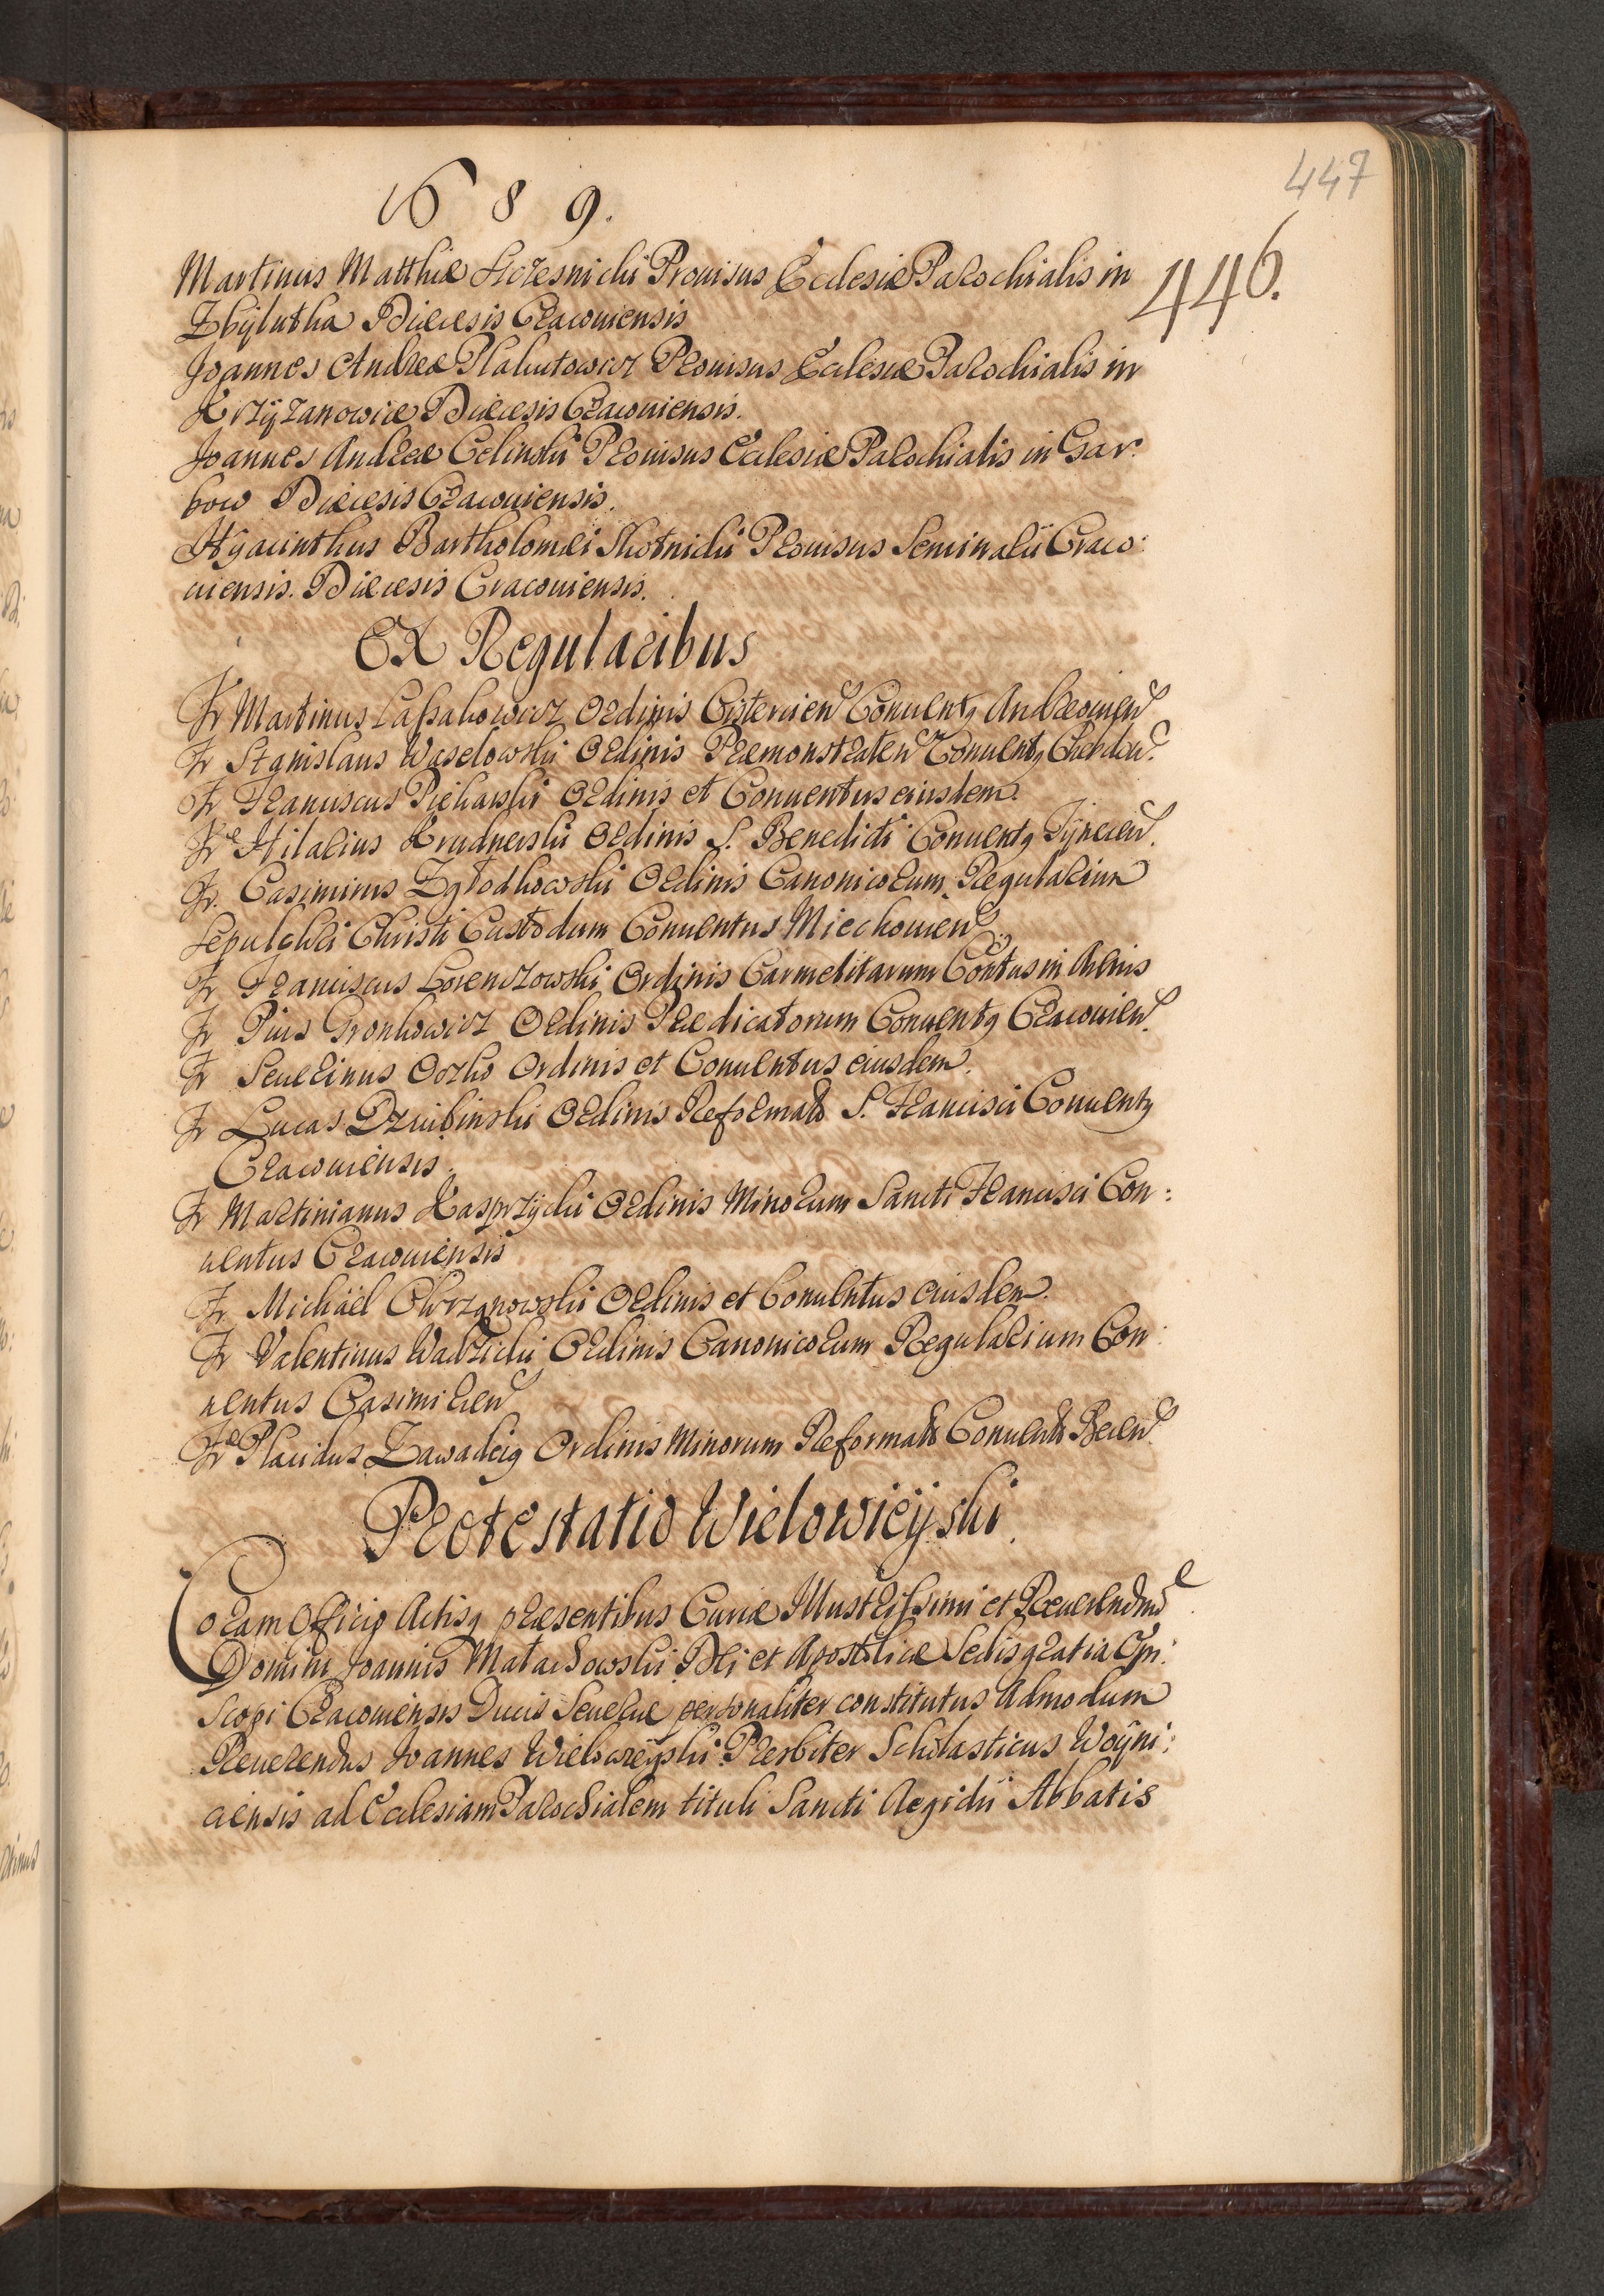 447
1689.
446.
Martinus Matthiæ Szczesnicki Prouisus Ecclesiæ Parochialis in
Zbÿlutha Diæcesis Cracouiensis
Joannes Andreæ Plahutowicz Prouisus Ecclesiæ Parochialis in
Krzÿzanowice Diæcesis Cracouiensis.
Joannes Andreæ Celinski Prouisus Ecclesiæ Parochialis in Gar:
bow Diæcesis Cracouiensis.
Hÿacinthus Bartholomæi Skotnicki Prouisus Seminarÿ Craco:
uiensis. Diæcesis Cracouiensis.
Ex Regularibus
Fr Martinus Ordinis Cistercien Conuentq Andreouien
Fr Stanislaus Waselowski Ordinis Præmonstraten Conuentq Chebdou.
Fr Franciscus Piekarski Ordinis et Conuentus eiusdem.
Fr Hilarius Krudnerski Ordinis S. Benedicti Conuentq Tÿnecen.
Fr. Casimirus Zgłodkowski Ordinis Canonicorum Regularium
Sepulchri Christi Custodum Conuentus Miechouien.
Fr Franciscus Lorenczowski Ordinis Carmelitarum Contus in Arenis
Fr Pius Gronkowicz Ordinis Prædicatorum Conuentq Cracouien.
Fr Seuerinus Ordinis et Conuentus eiusdem.
Fr Lucas Dziubinski Ordinis Reformator S. Francisci Conuentq
Cracouiensis.
Fr Martinianus Kasprzÿcki Ordinis Minorum Sancti Francisci Con:
uentus Cracouiensis
Fr Michäel Chrzanowski Ordinis et Conuentus eiusdem.
Fr Valentinus Wadzicki Ordinis Canonicorum Regularium Con:
uentus Casimirien
Fr Placidus Ordinis Minorum Reformator Conuentus Becen.
Protestatio Wielowieÿski.
Coram Officio Actisq præsentibus Curiæ Illustrissimi et Reuerendmi
Domini Joannis Małachowski Dei et Apostolicæ Sedis gratia Epi:
scopi Cracouiensis Ducis Seueriæ personaliter constitutus Admodum
Reuerendus Joannes Wielowieÿski Præsbiter Scholasticus Woÿni:
ciensis ad Ecclesiam Parochialem tituli Sancti Aegidii Abbatis